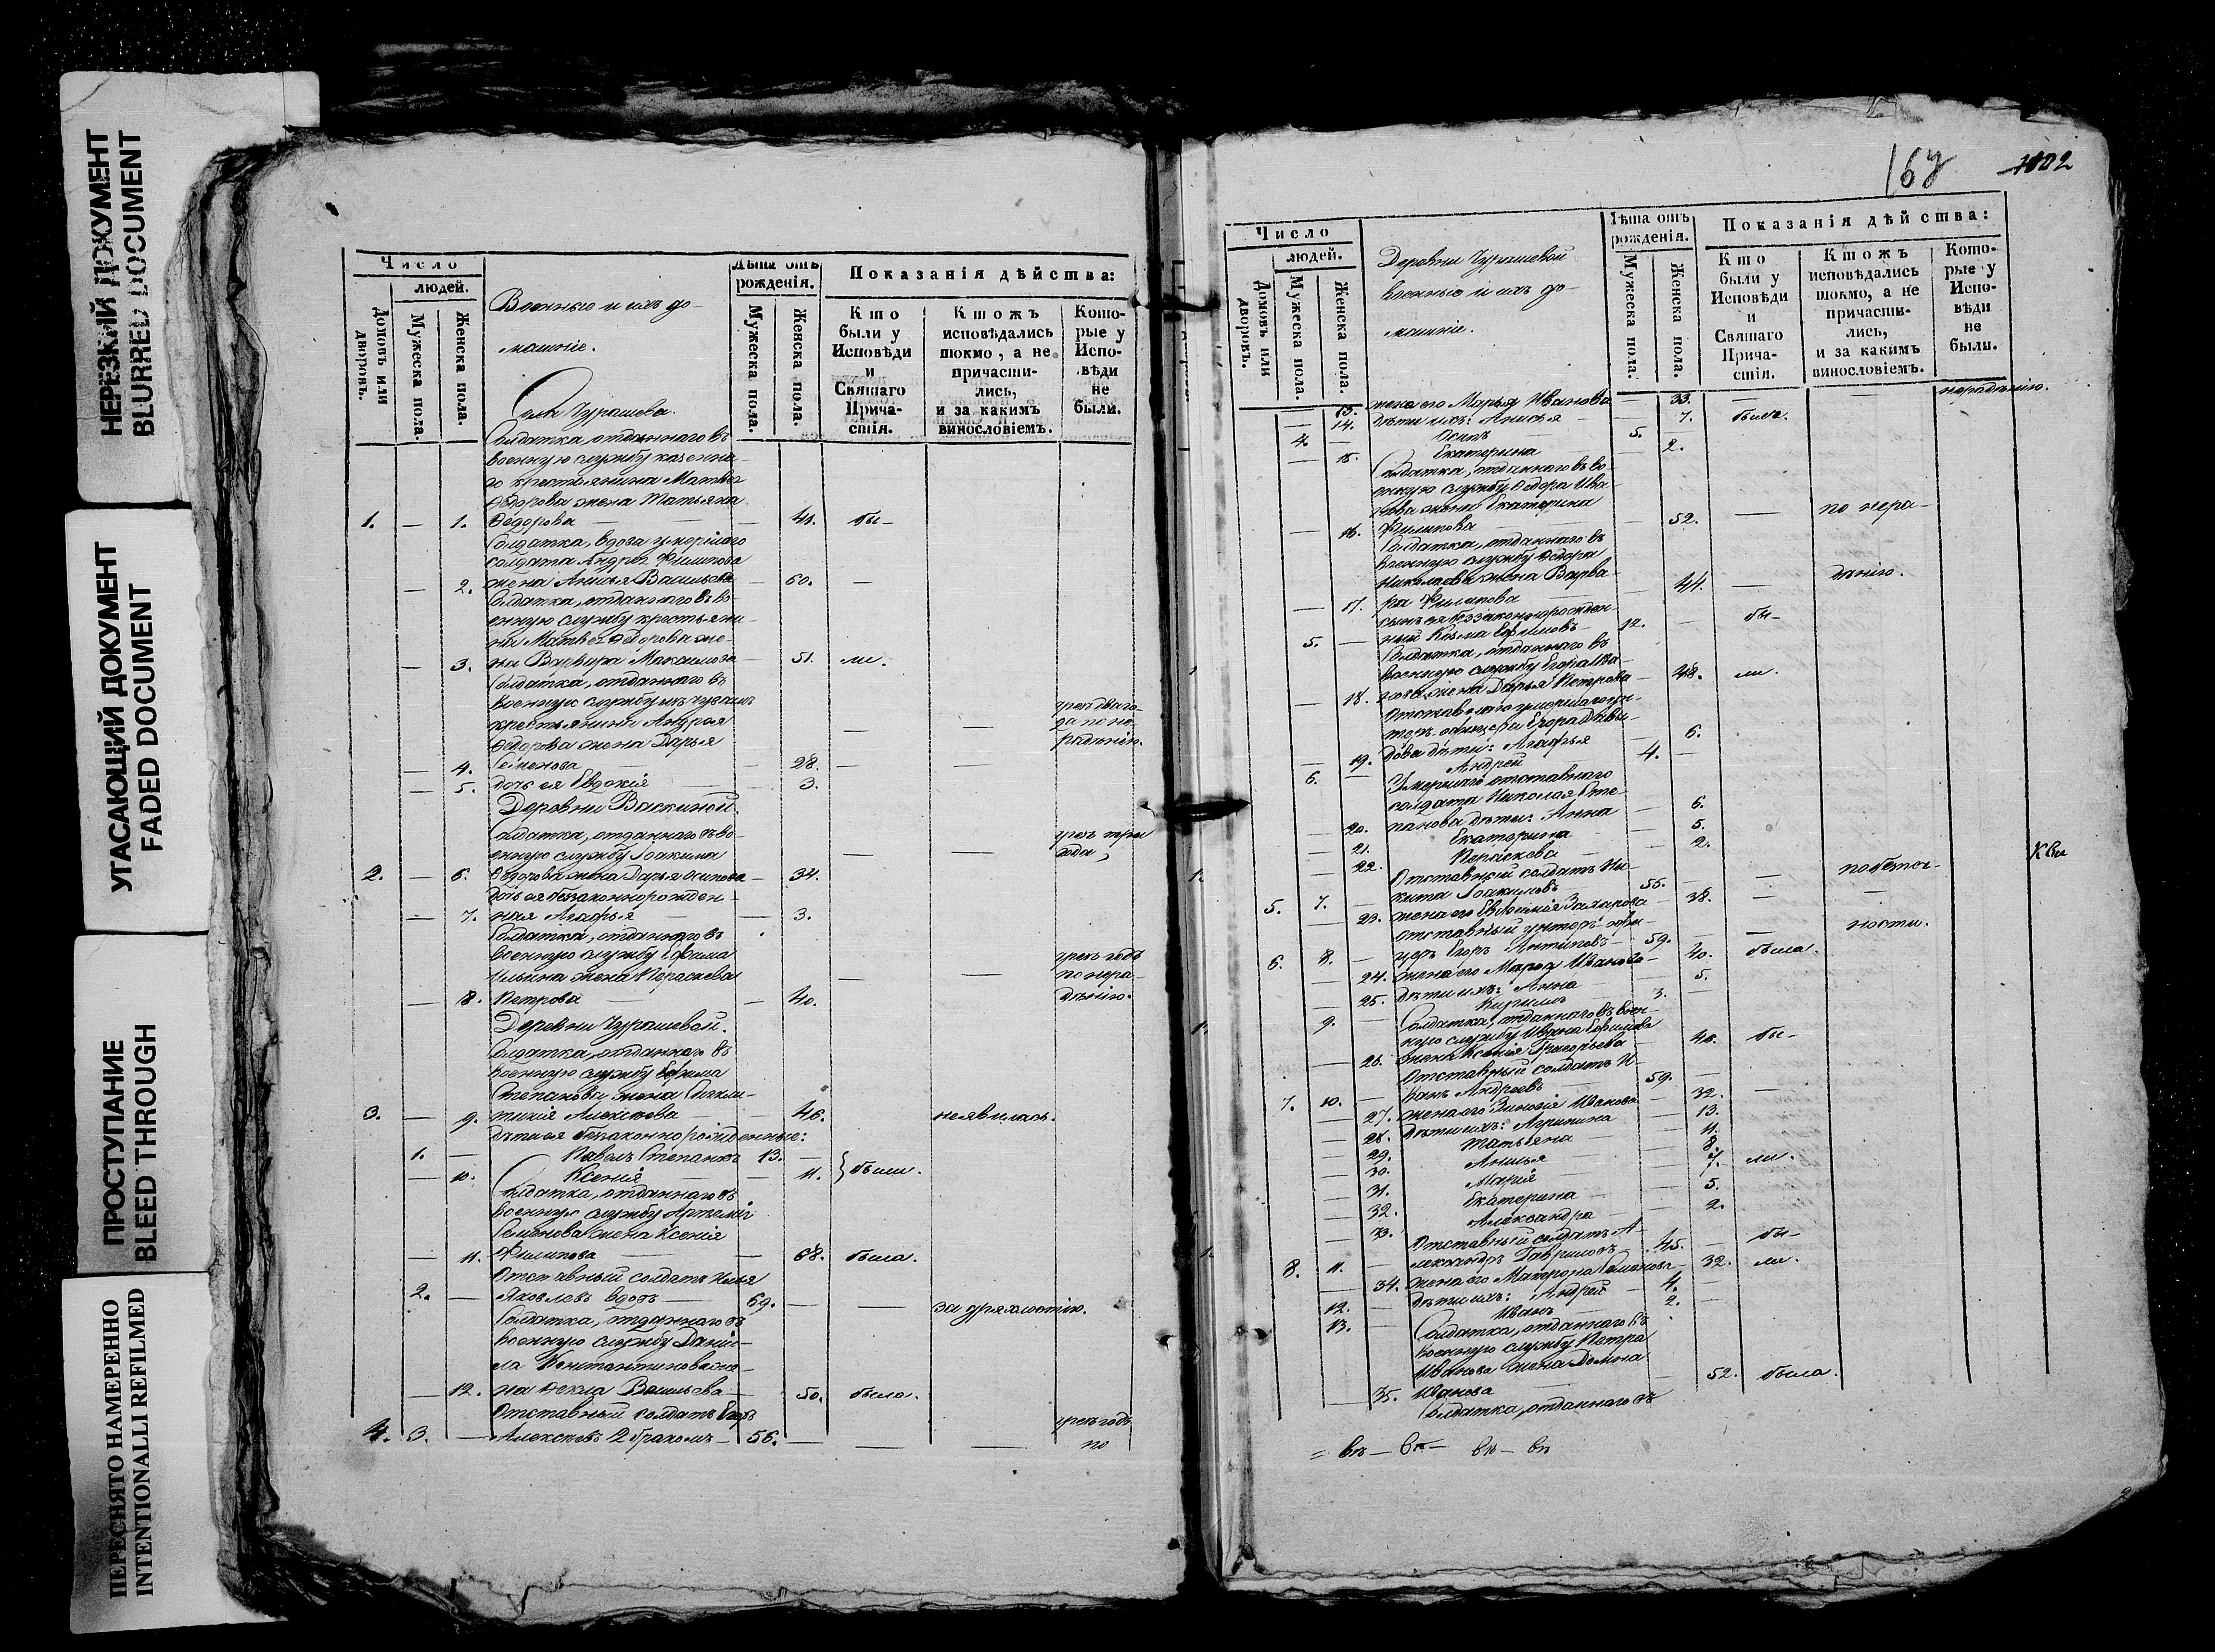 НЕРЕЗКИЙ ДОКУМЕНТ
BLURRED DOCUMENT
УГАСАЮЩИЙ ДОКУМЕНТ
FADED DOCUMENT
ПРОСТУПАНИЕ
BLEED THROUGH
ПЕРЕСНЯТО НАМЕРЕННО
INTENTIONALLI REFILMED
Число
людей.
Домовъ или дворовъ.
Мужеска пола.
Женска пола.
Военные и ихъ до-
машніе.
Лѣта отъ
рожденія.
Мужеска пола.
Женска пола.
Показанія дѣйства:
Кто
были у
Исповѣди
и
Святаго
Прича-
стія.
Ктожъ
исповѣдались
токмо, а не
причасти-
лись,
и за какимъ
винословіемъ.
Кото-
рые у
Испо-
вѣди
не
были.
Села Чурашева.
Солдатка, отданнаго въ
военную службу казенна-
го крестьянина Матвея
Ѳедорова жена Татьяна
1. — 1. Ѳедорова — 41. бы-
Солдатка, вдова умершаго
солдата Андрея Филипова
— 2. жена Анисья Васильева — 60. —
Солдатка, отданнаго въ во-
енную службу крестьяни-
на Матвея Ѳедорова же-
— 3. на Варвара Максимова — 51. ли.
Солдатка, отданнаго въ
военную службу изъ чувашъ
крестьянина Андрея
Ѳедорова жена Дарья
— 4. Семенова — 28. —
— 5. дочь ея Евдокія — 3.
Деревни Васкиной.
Солдатка, отданнаго въ во-
енную службу Іоакима
2. — 6. Ѳедорова жена Дарья Осипова — 34.
дочь ея беззаконнорожден-
— 7. ная Агафья — 3.
Солдатка, отданнаго въ
военную службу Ефима
Ильина жена Параскева
— 8. Петрова — 40.
чрезъ годъ
по нера-
дѣнію.
Деревни Чурашевой.
Солдатка, отданнаго въ
военную службу Ефима
Степанова жена Синкли-
3. — 9. тикія Алексѣева — 46. неявилась.
дѣти ея беззаконнорожденные:
1. — Павелъ Степановъ 13. —
— 10. Ксенія — 11. были.
Солдатка, отданнаго въ
военную службу Артемія
Семенова жена Ксенія
— 11. Филипова — 68. была.
Отставный солдатъ Илья
2. — Яковлевъ вдовъ — 69. — — за дряхлостію.
Солдатка, отданнаго въ
военную службу Даніи-
ла Константинова же-
— 12. на Ѳекла Васильева — 50. была.
Отставный солдатъ Егоръ
4. 3. — Алексѣевъ 2 бракомъ — 56. — — чрезъ годъ
по
167 1002
Число
людей.
Домовъ или дворовъ.
Мужеска пола.
Женска пола.
Деревни Чурашевой
военные и ихъ до-
машніе.
Лѣта отъ
рожденія.
Мужеска пола.
Женска пола.
Показанія дѣйства:
Кто
были у
Исповѣди
и
Святаго
Прича-
стія.
Ктожъ
исповѣдались
токмо, а не
причасти-
лись,
и за какимъ
винословіемъ.
Кото-
рые у
Испо-
вѣди
не
были.
— 13. жена его Марья Иванова — 33. — — нерадѣнію.
— 14. дѣти ихъ: Анисья — 7. была.
4. — Осипъ 5.
— 15. Екатерина — 2.
Солдатка, отданнаго въ во-
енную службу Ѳедора Ива-
нова жена Екатерина
— 16. Филипова — 52. — по нера-
Солдатка, отданнаго въ
военную службу Ѳедора
Николаева жена Варва-
— 17. ра Филипова — 44. — дѣнію.
сынъ ея беззаконнорожден-
5. — ный Козма Ефимовъ 12. — бы-
Солдатка, отданнаго въ
военную службу Егора Ива-
— 18. нова жена Дарья Петрова — 48. ли.
Отставнаго умершаго ун-
теръ офицера Егора Дави-
— 19. дова дѣти: Агафья — 6.
6. — Андрей 4. —
Умершаго отставнаго
солдата Николая Сте-
— 20. панова дѣти: Анна — 6.
— 21. Екатерина — 5.
— 22. Параскева — 2.
Отставный солдатъ Ни-
5. 7. — кита Іоакимовъ 55. — —
— 23. жена его Евѳимія Захарова — 38. — —
Отставный унтеръ-офи-
6. 8. — церъ Егоръ Антиповъ 59. — — ности.
— 24. жена его Марѳа Иванова — 40. была.
— 25. дѣти ихъ: Анна — 5.
9. — Кирилъ 3.
Солдатка, отданнаго въ воен-
ную службу Ивана Ефимова
— 26. жена Ксенія Григорьева — 40. бы-
Отставный солдатъ И-
7. 10. — ванъ Андреевъ 59. —
— 27. жена его Зиновія Иванова — 32. —
— 28. дѣти ихъ: Агрипина — 13.
— 29. Татьяна — 11.
— 30. Анисья — 8.
— 31. Марія — 7. ли.
— 32. Екатерина — 5.
— 33. Александра — 2.
Отставный солдатъ А-
8. 11. — лександръ Гавриловъ 45. — бы-
— 34. жена его Матрона Семенова — 32. ли.
12. — дѣти ихъ: Андрей 4. —
13. — Иванъ 2. —
Солдатка, отданнаго въ
военную службу Петра
Иванова жена Домна
— 35. Иванова — 52. была.
Солдатка, отданнаго въ